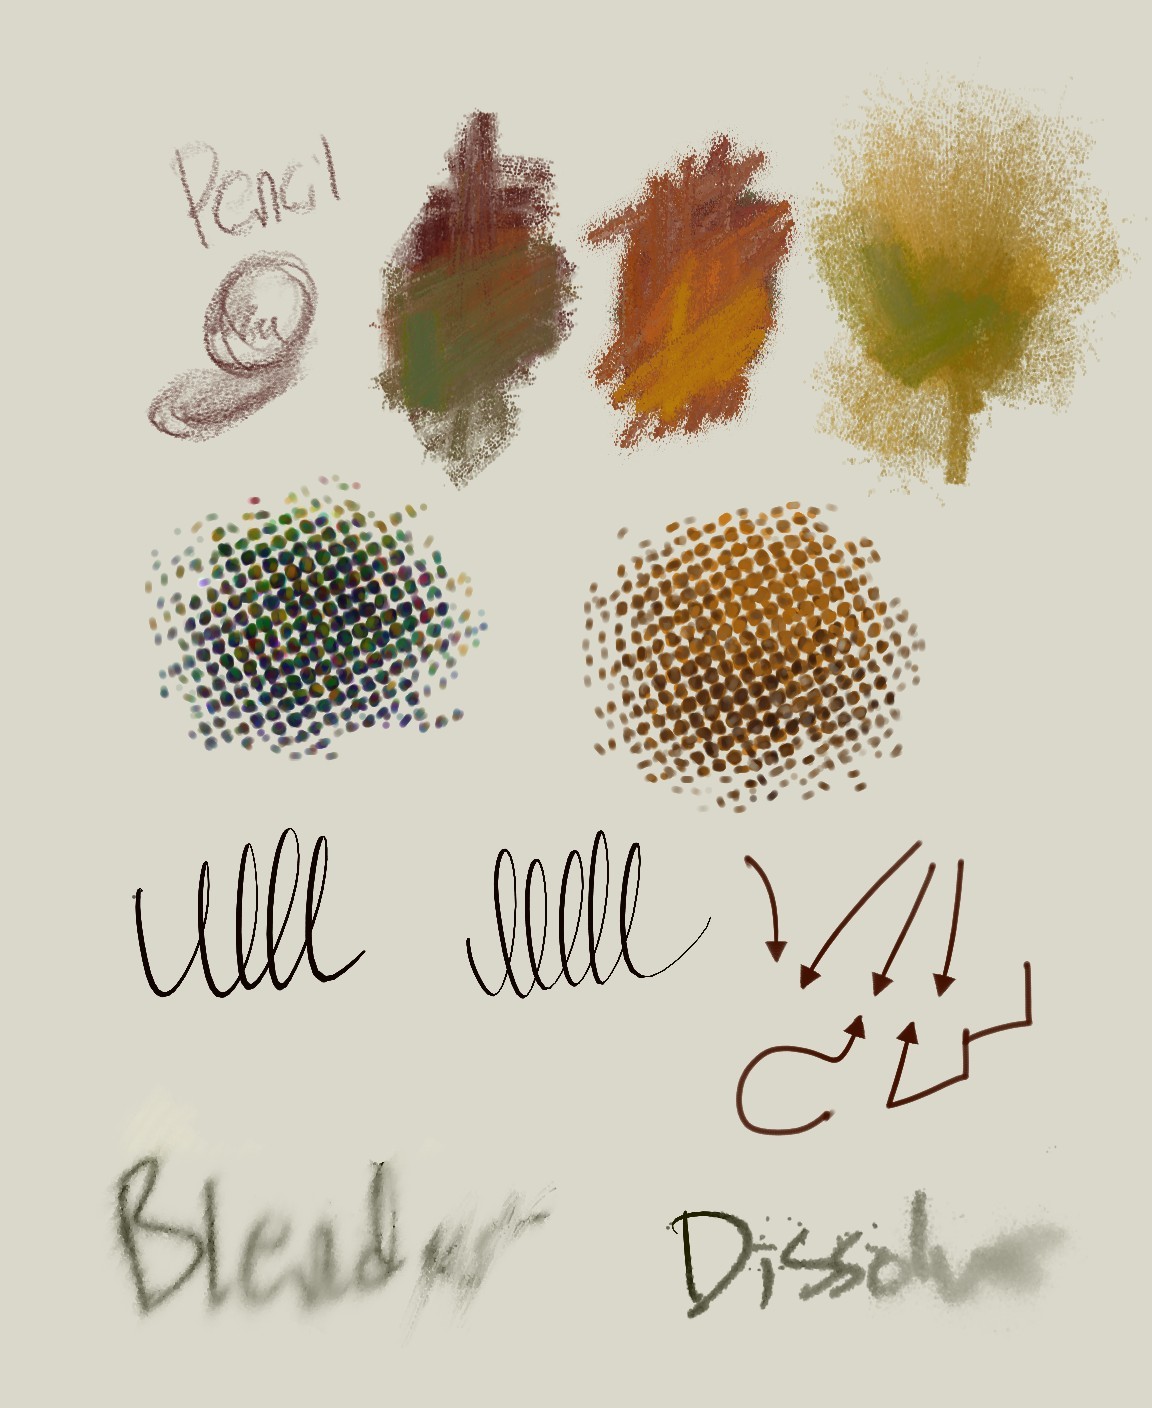 Pencil
Blend
Dissolv